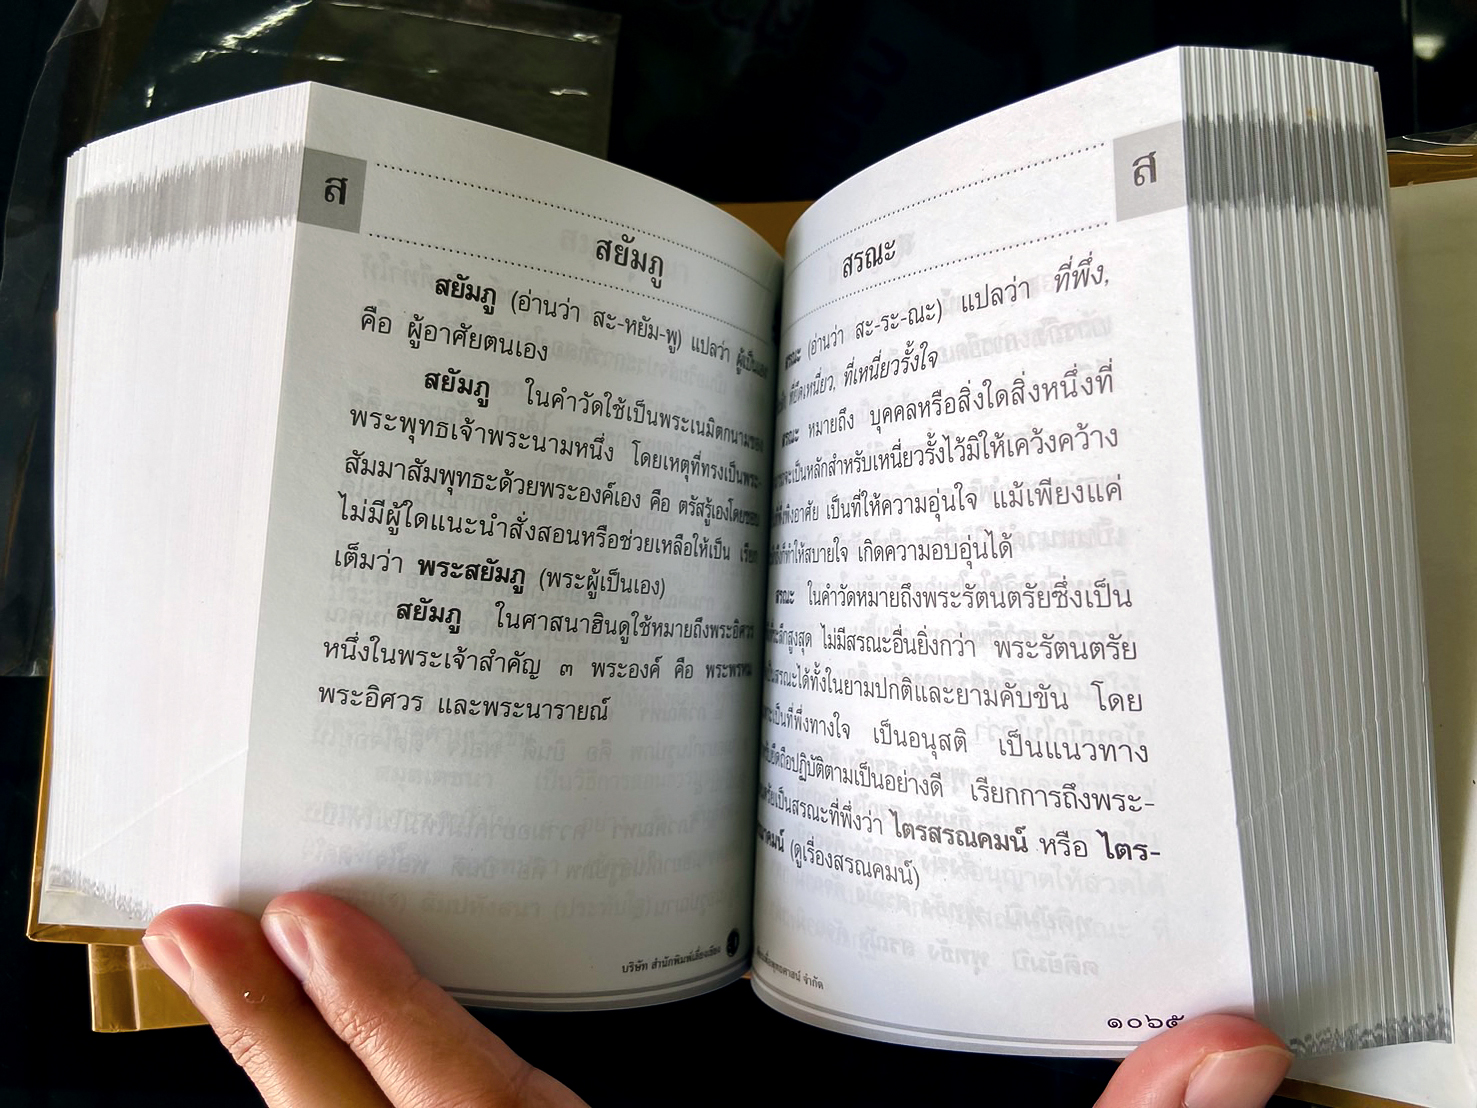 ส
สยัมภู
สยัมภู (อ่านว่า สะ-หยัม-พู) แปลว่า ผู้เป็นเอง
คือ ผู้อาศัยตนเอง
สยัมภู ในคำวัดใช้เป็นพระเนมิตกนามของ
พระพุทธเจ้าพระนามหนึ่ง โดยเหตุที่ทรงเป็นพระ-
สัมมาสัมพุทธะด้วยพระองค์เอง คือ ตรัสรู้เองโดยชอบ
ไม่มีผู้ใดแนะนำสั่งสอนหรือช่วยเหลือให้เป็น เรียก
เต็มว่า พระสยัมภู (พระผู้เป็นเอง)
สยัมภู ในศาสนาฮินดูใช้หมายถึงพระอิศวร
หนึ่งในพระเจ้าสำคัญ ๓ พระองค์ คือ พระพรหม
พระอิศวร และพระนารายณ์
บริษัท สำนักพิมพ์เลี่ยงเชียง
ส
สรณะ
สรณะ (อ่านว่า สะ-ระ-ณะ) แปลว่า ที่พึ่ง,
ที่ยึดเหนี่ยว, ที่เหนี่ยวรั้งใจ
สรณะ หมายถึง บุคคลหรือสิ่งใดสิ่งหนึ่งที่
จะเป็นหลักสำหรับเหนี่ยวรั้งไว้มิให้เคว้งคว้าง
พึ่งอาศัย เป็นที่ให้ความอุ่นใจ แม้เพียงแค่
ก็ทำให้สบายใจ เกิดความอบอุ่นได้
สรณะ ในคำวัดหมายถึงพระรัตนตรัยซึ่งเป็น
ที่ระลึกสูงสุด ไม่มีสรณะอื่นยิ่งกว่า พระรัตนตรัย
เป็นสรณะได้ทั้งในยามปกติและยามคับขัน โดย
เป็นที่พึ่งทางใจ เป็นอนุสติ เป็นแนวทาง
ยึดถือปฏิบัติตามเป็นอย่างดี เรียกการถึงพระ-
เป็นสรณะที่พึ่งว่า ไตรสรณคมน์ หรือ ไตร-
(ดูเรื่องสรณคมน์)
จำกัด
๑๐๖๕